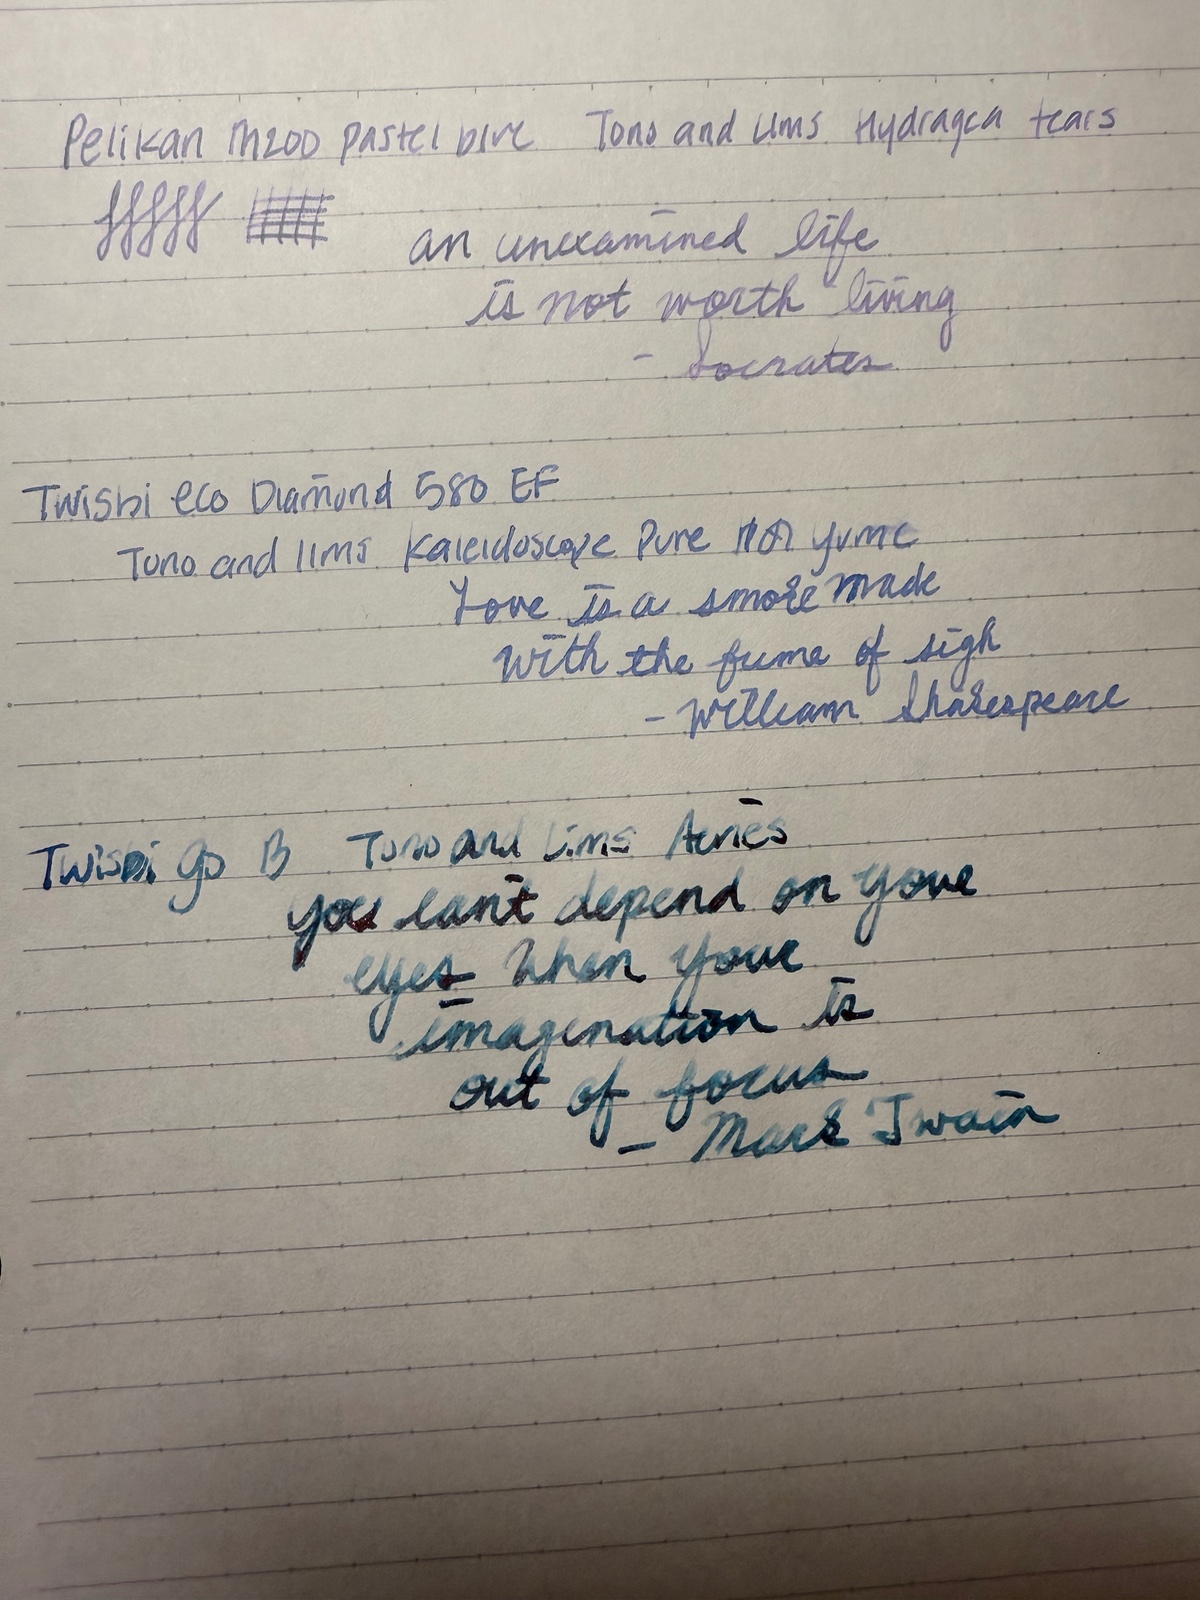 Pelikan M200 Pastel blue Tono and Lims Hydragea tears
an unexamined life
is not worth living
- Socrates
Twisbi eco Diamond 580 EF
Tono and lims Kaleidoscope Pure yume
Love is a smoke made
with the fume of sigh
- William Shakespeare
Twisbi go B Tono and Lims
you can't depend on your
eyes when your
imagination is
out of focus
- Mark Twain